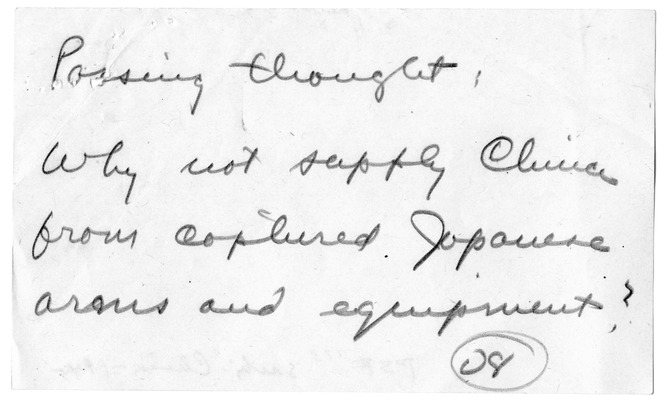 Passing thought:
Why not supply China
from captured Japanese
arms and equipment?